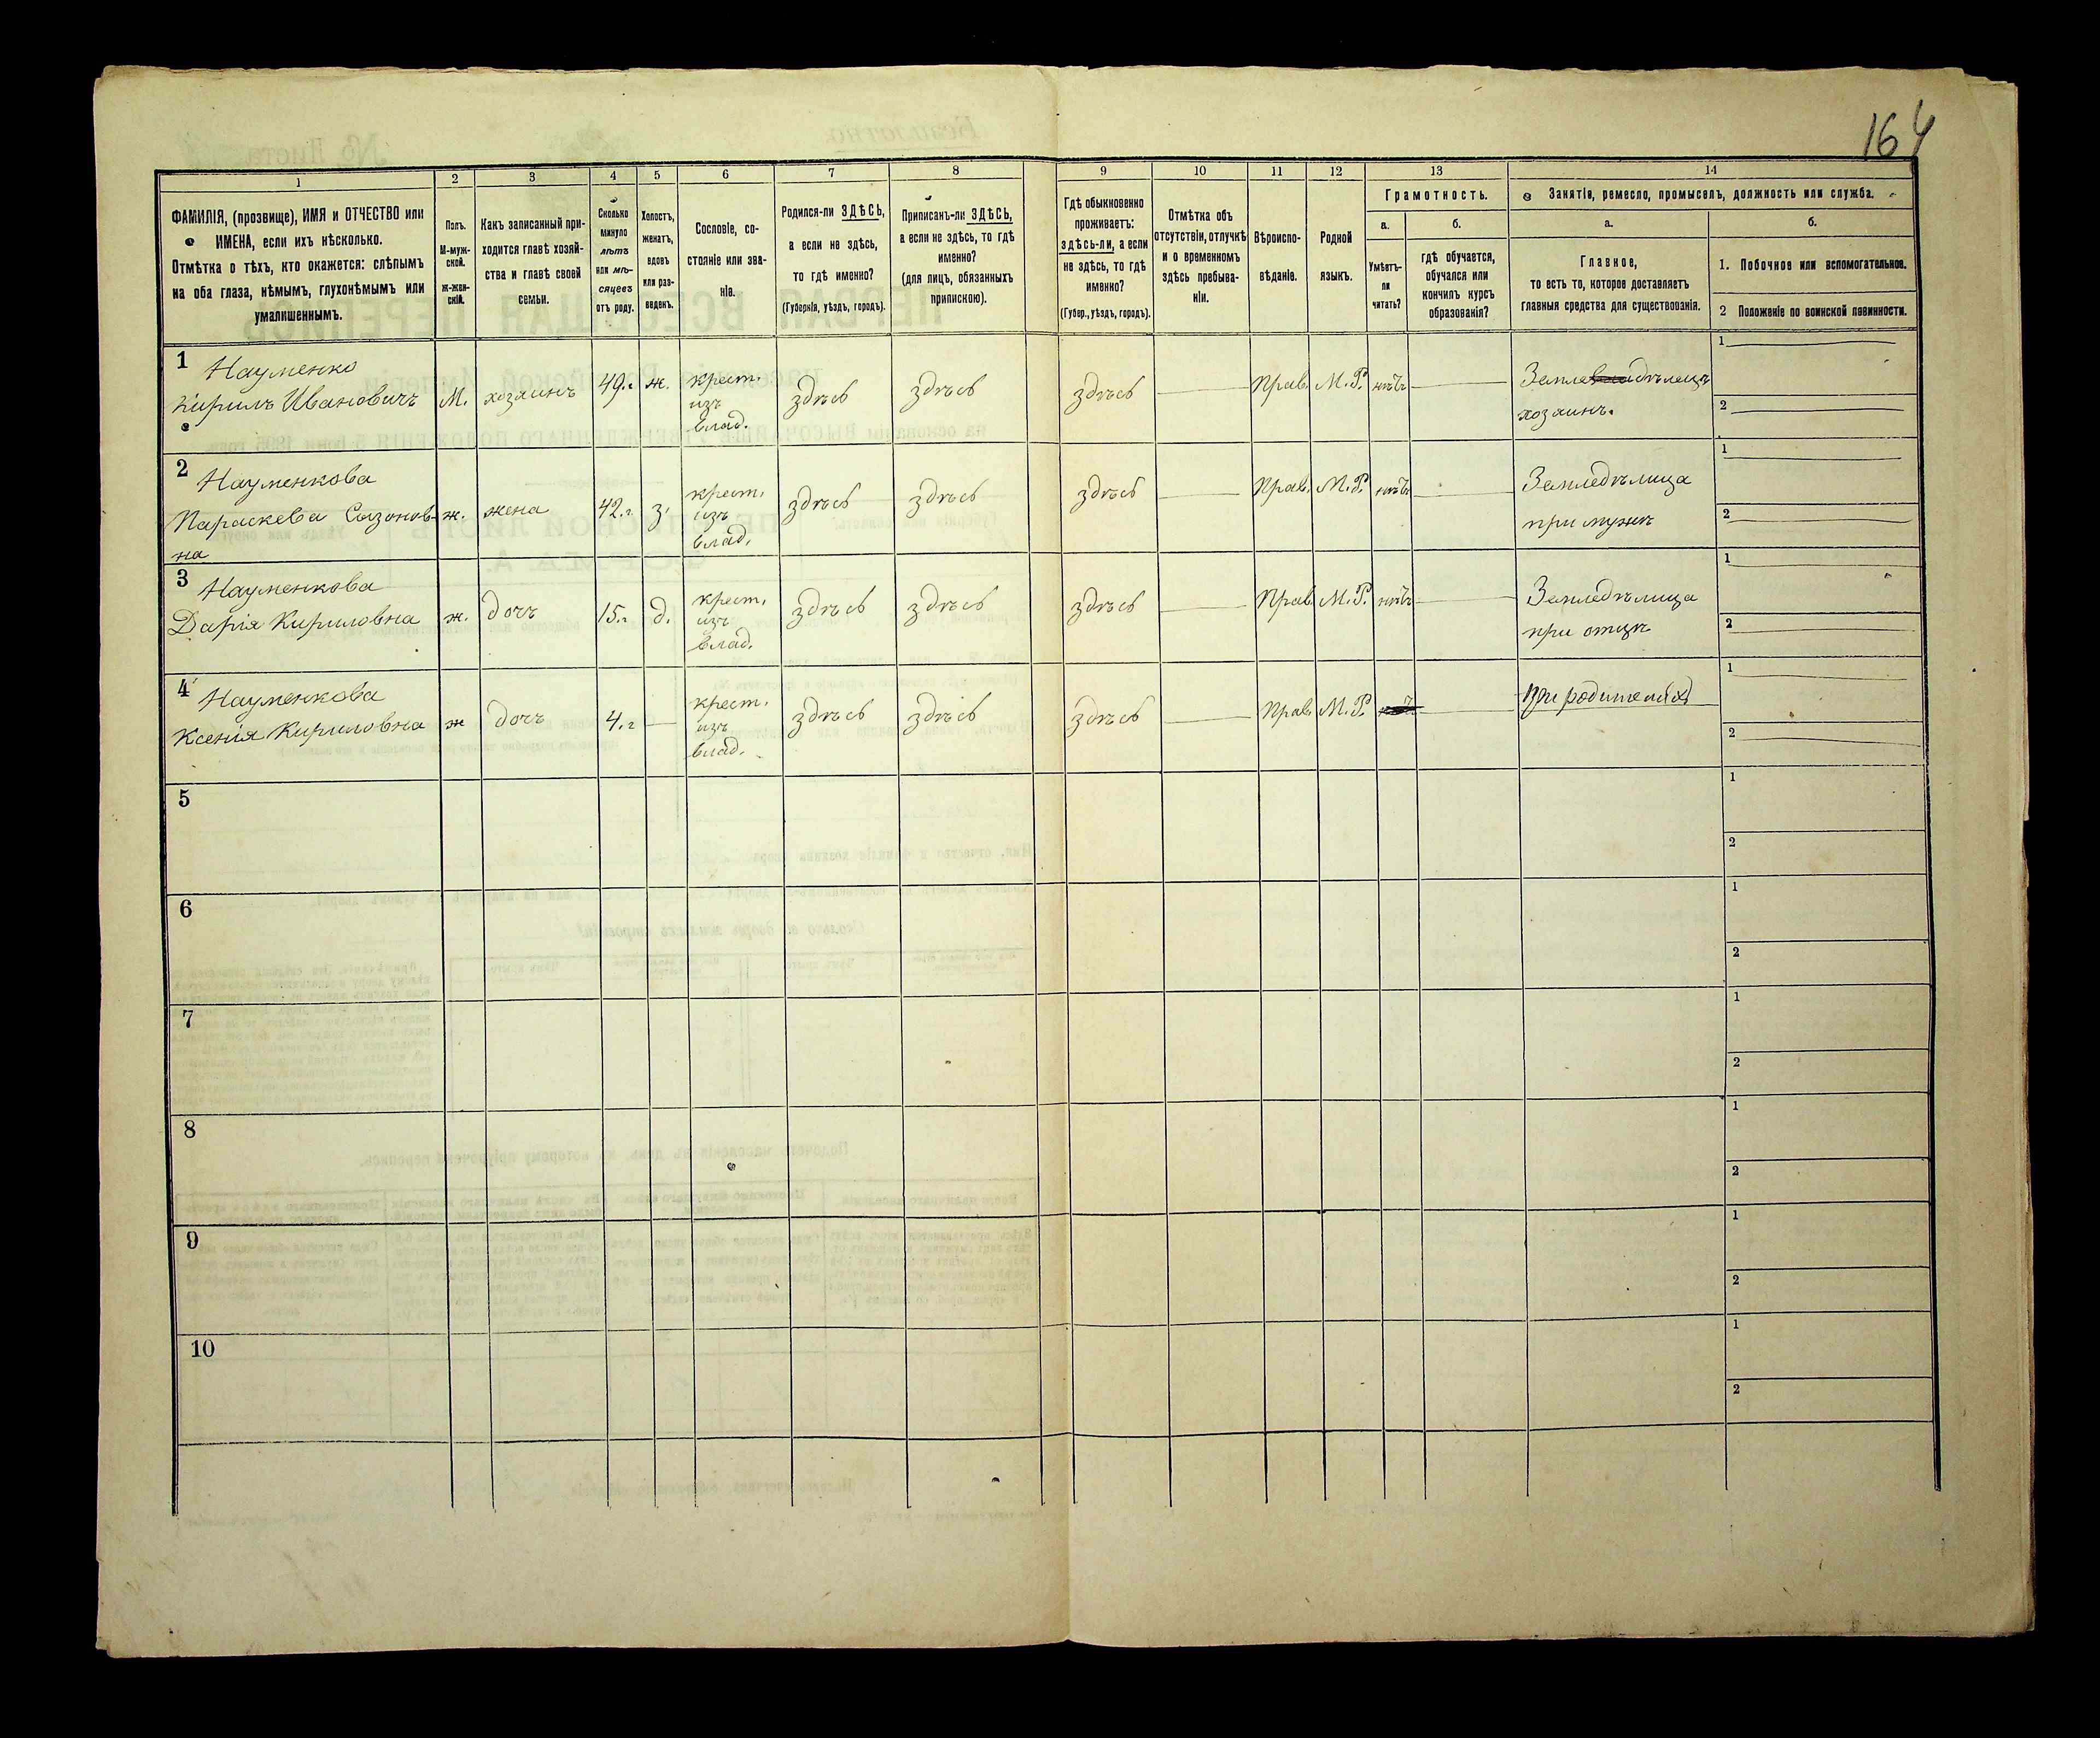 164
1
2
3
4
5
6
7
8
9
10
11
12
13
14
ФАМИЛІЯ, (прозвище), ИМЯ и ОТЧЕСТВО или
ИМЕНА, если ихъ нѣсколько.
Отмѣтка о тѣхъ, кто окажется: слѣпымъ
на оба глаза, нѣмымъ, глухонѣмымъ или
умалишеннымъ.
Полъ.
М-муж-
ской.
ж-жен-
скій.
Какъ записанный при-
ходится главѣ хозяй-
ства и главѣ своей
семьи.
Сколько
минуло
лѣтъ
или мѣ-
сяцевъ
отъ роду.
Холостъ,
женатъ,
вдовъ
или раз-
веденъ.
Сословіе, со-
стояніе или зва-
ніе.
Родился-ли ЗДѢСЬ,
а если не здѣсь,
то гдѣ именно?
(Губернія, уѣздъ, городъ).
Приписанъ-ли ЗДѢСЬ,
а если не здѣсь, то гдѣ
именно?
(для лицъ, обязанныхъ
припискою).
Гдѣ обыкновенно
проживаетъ:
здѣсь-ли, а если
не здѣсь, то гдѣ
именно?
(Губер., уѣздъ, городъ).
Отмѣтка объ
отсутствіи, отлучкѣ
и о временномъ
здѣсь пребыва-
ніи.
Вѣроиспо-
вѣданіе.
Родной
языкъ.
Грамотность.
а.
Умѣетъ-
ли
читать?
б.
гдѣ обучается,
обучался или
кончилъ курсъ
образованія?
Занятія, ремесло, промыселъ, должность или служба.
а.
Главное,
то есть то, которое доставляетъ
главныя средства для существованія.
б.
1. Побочное или вспомогательное.
2 Положеніе по воинской повинности.
1
Науменко
Кирилъ Ивановичъ
М.
хозяинъ
49.г
ж.
крест.
изъ
влад.
здѣсь
здѣсь
здѣсь
Прав.
М.Р.
нѣтъ
Землевладѣлецъ
хозяинъ.
1
2
2
Науменкова
Параскева Сызонов-
на
ж.
жена
42.г
з.
крест.
изъ
влад.
здѣсь
здѣсь
здѣсь
Прав.
М.Р.
нѣтъ
Земледѣлица
при мужѣ
1
2
3
Науменкова
Дарія Кириловна
ж.
дочъ
15.г
д.
крест.
изъ
влад.
здѣсь
здѣсь
здѣсь
Прав.
М.Р.
нѣтъ
Земледѣлица
при отцѣ
1
2
4
Науменкова
Ксенія Кириловна
ж
дочъ
4.г
крест.
изъ
влад.
здѣсь
здѣсь
здѣсь
Прав.
М.Р.
при родителяхъ
1
2
5
1
2
6
1
2
7
1
2
8
1
2
9
1
2
10
1
2